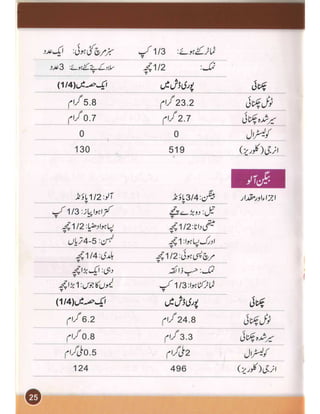 ٹماٹر کٹے ہوئے: 1/3 کپ سبز مرچ کٹی ہوئی: ایک عدد
نمک: 1/2 چمچہ سلاد کے پتے کٹے ہوئے: 3 عدد
چکنائی پوری ڈش میں ایک حصہ میں (1/4)
ٹوٹل چکنائی 23.2 گرام 5.8 گرام
سیر شدہ چکنائی 2.7 گرام 0.7 گرام
کولیسٹرال 0 0
انرجی (کلوریز) 519 130
بیگن آلو
اجزاء اور مقدار
بیگن: 3/4 پاؤنڈ آلو: 1/2 پاؤنڈ
تیل: دو بڑے چمچے کترا ہوا پیاز: 1/3 کپ
میتھی دانا: 1/2 چمچہ پسا ہوا دھنیا: 1/2 چمچہ
ادرک پسا ہوا: 1 چمچہ لہسن: 4-5 تریاں
مرچ پسی ہوئی: 1/2 چمچہ ہلدی: 1/4 چمچہ
نمک: حسب ذائقہ دہی: ایک بڑا چمچہ
ٹماٹر کٹا ہوا: 1/3 کپ لیموں کا جوس: 1 بڑا چمچہ
چکنائی پوری ڈش میں ایک حصہ میں (1/4)
ٹوٹل چکنائی 24.8 گرام 6.2 گرام
سیر شدہ چکنائی 3.3 گرام 0.8 گرام
کولیسٹرال 2 ملی گرام 0.5 ملی گرام
انرجی (کلوریز) 496 124
25